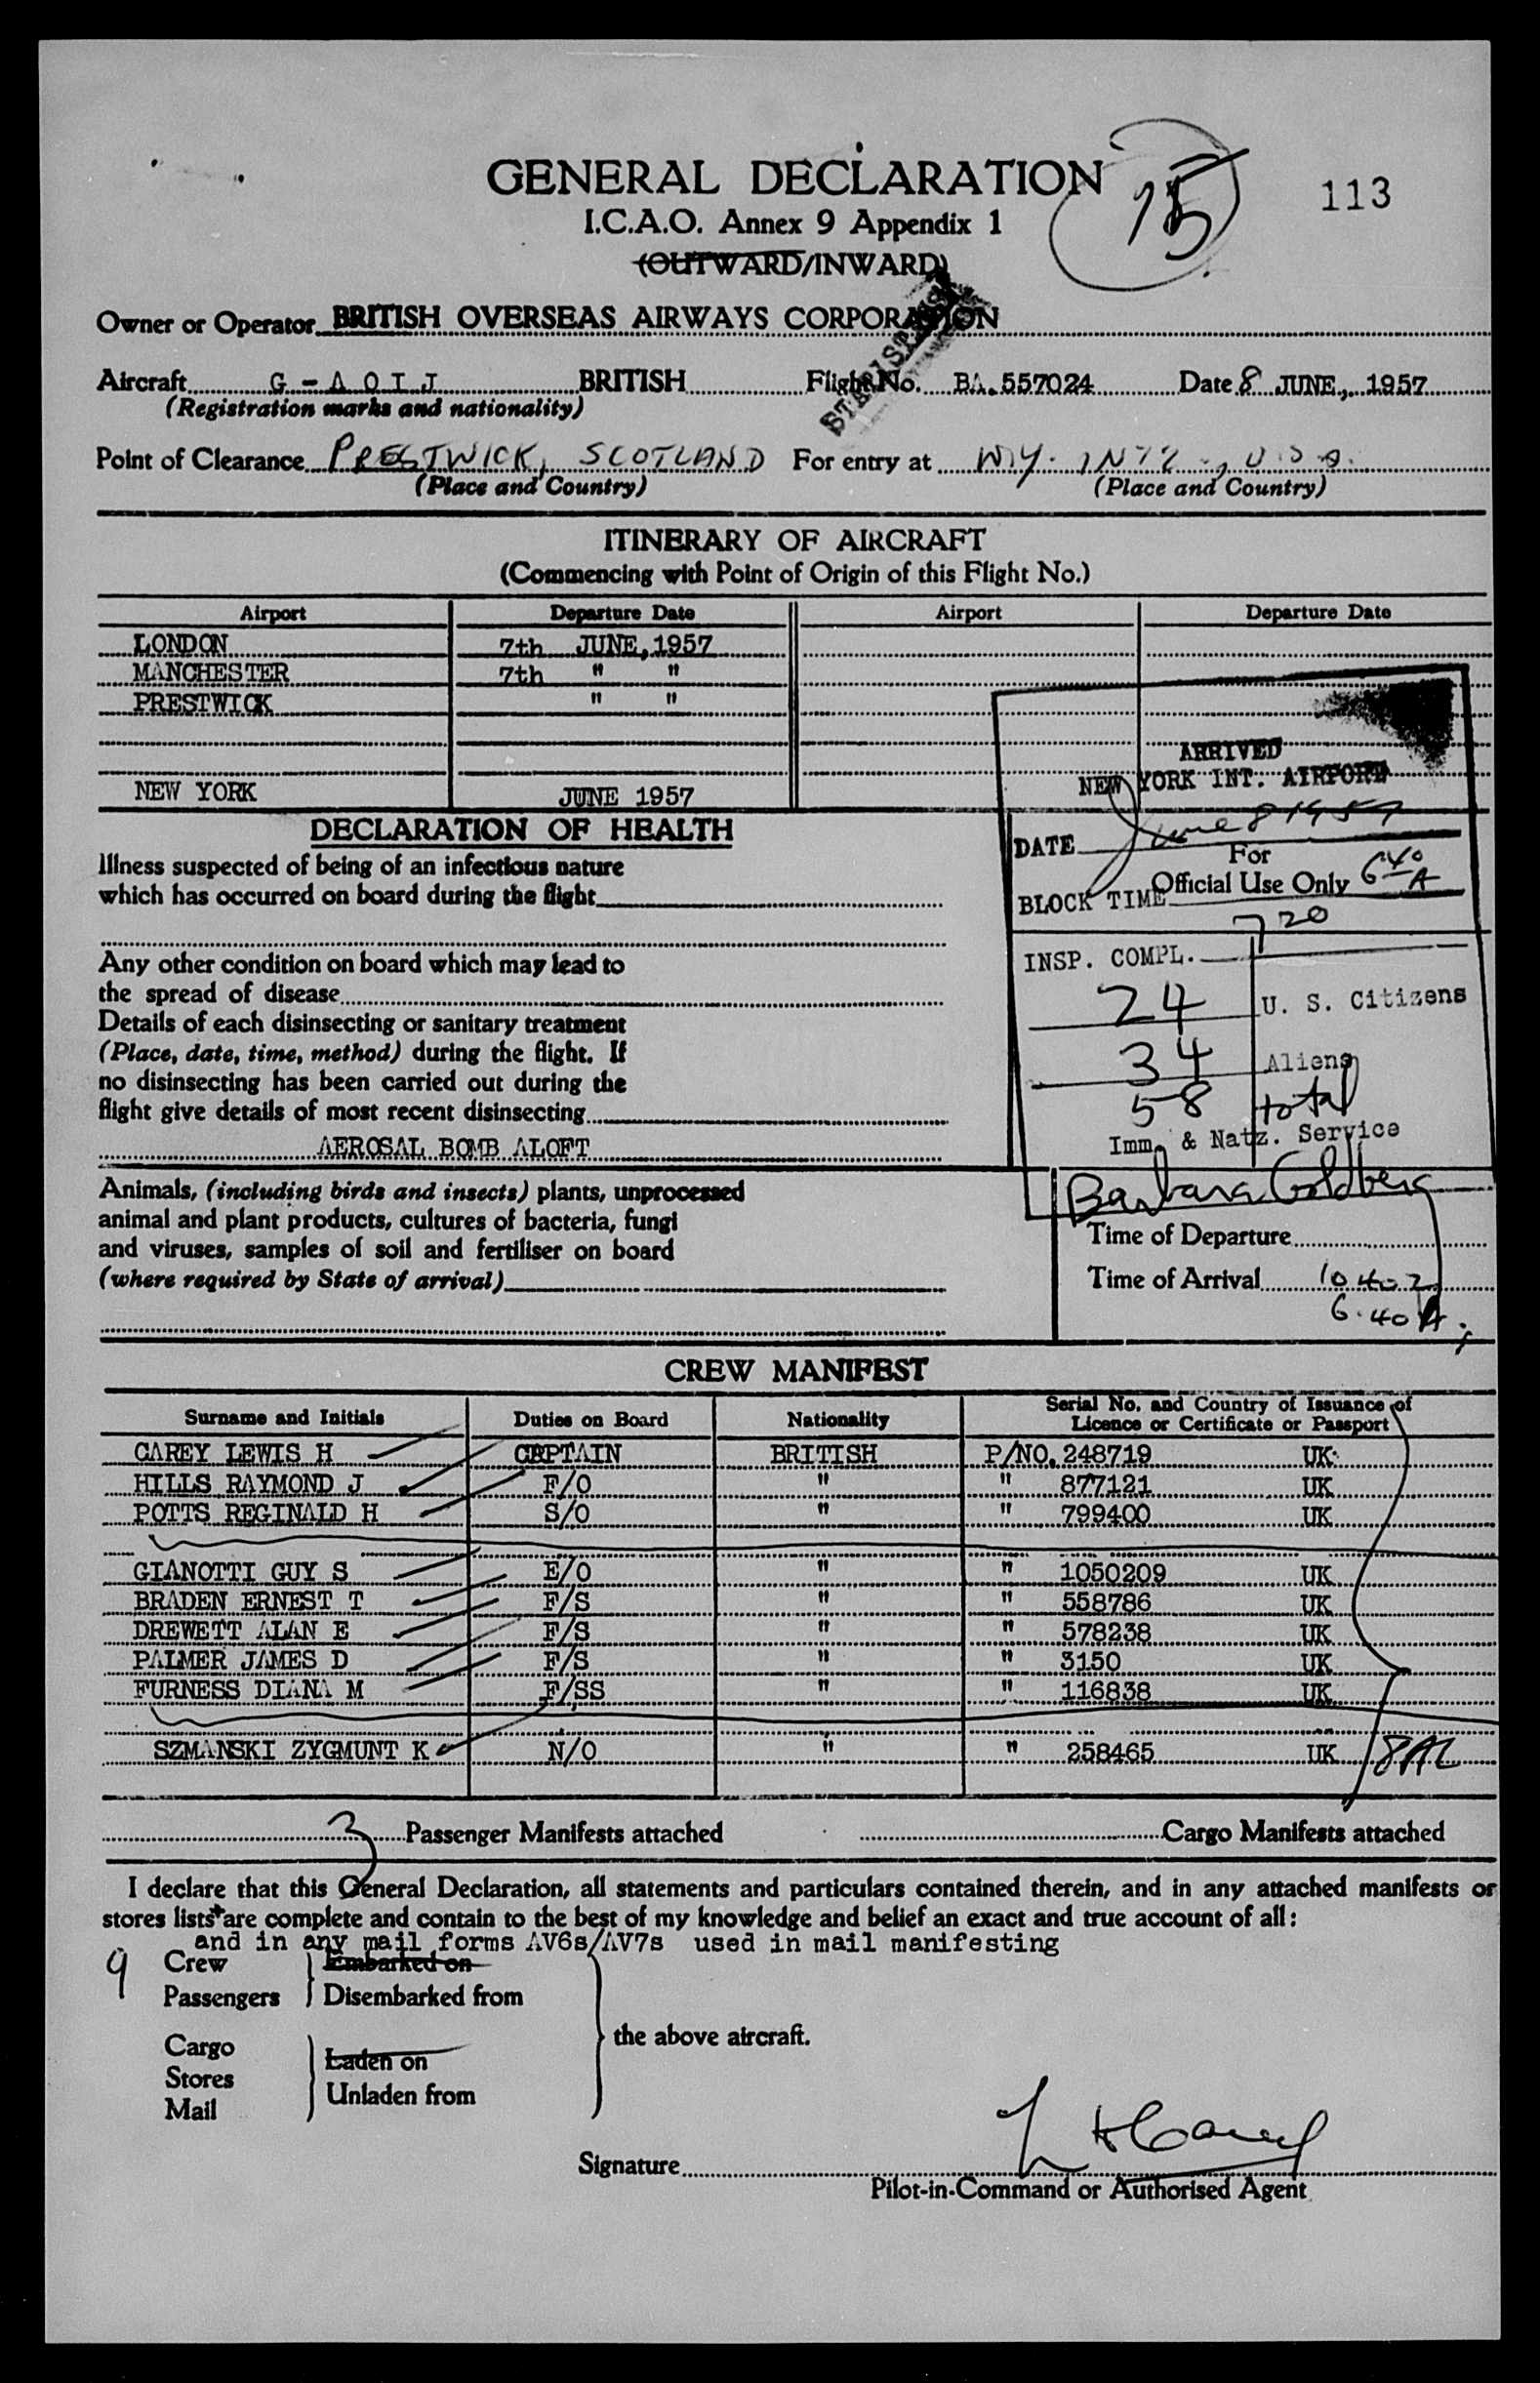 GENERAL DECLARATION
15
113
I.C.A.O. Annex 9 Appendix 1
(OUTWARD/INWARD)
Owner or Operator BRITISH OVERSEAS AIRWAYS CORPORATION
Aircraft G - A O I J BRITISH Flight No. BA.557024 Date 8 JUNE, 1957
(Registration marks and nationality)
Point of Clearance PRESTWICK, SCOTLAND For entry at N.Y. INTL., U.S.A.
(Place and Country) (Place and Country)
ITINERARY OF AIRCRAFT
(Commencing with Point of Origin of this Flight No.)
Airport Departure Date Airport Departure Date
LONDON 7th JUNE, 1957
MANCHESTER 7th " "
PRESTWICK " "
NEW YORK JUNE 1957
ARRIVED
NEW YORK INT. AIRPORT
DATE June 8 1957
For
Official Use Only
BLOCK TIME 640 A
720
INSP. COMPL.
24 U. S. Citizens
34 Aliens
58 total
Imm. & Natz. Service
Barbara Goldberg
DECLARATION OF HEALTH
Illness suspected of being of an infectious nature
which has occurred on board during the flight
Any other condition on board which may lead to
the spread of disease
Details of each disinsecting or sanitary treatment
(Place, date, time, method) during the flight. If
no disinsecting has been carried out during the
flight give details of most recent disinsecting
AEROSAL BOMB ALOFT
Animals, (including birds and insects) plants, unprocessed
animal and plant products, cultures of bacteria, fungi
and viruses, samples of soil and fertiliser on board
(where required by State of arrival)
Time of Departure
Time of Arrival 1040Z
6.40 A.
CREW MANIFEST
Surname and Initials Duties on Board Nationality Serial No. and Country of Issuance of
Licence or Certificate or Passport
CAREY LEWIS H CAPTAIN BRITISH P/NO. 248719 UK
HILLS RAYMOND J F/O " " 877121 UK
POTTS REGINALD H S/O " " 799400 UK
GIANOTTI GUY S E/O " " 1050209 UK
BRADEN ERNEST T F/S " " 558786 UK
DREWETT ALAN E F/S " " 578238 UK
PALMER JAMES D F/S " " 3150 UK
FURNESS DIANA M F/SS " " 116838 UK
SZMANSKI ZYGMUNT K N/O " " 258465 UK
3 Passenger Manifests attached Cargo Manifests attached
I declare that this General Declaration, all statements and particulars contained therein, and in any attached manifests or
stores lists are complete and contain to the best of my knowledge and belief an exact and true account of all:
and in any mail forms AV6s/AV7s used in mail manifesting
9 Crew Embarked on
Passengers Disembarked from
the above aircraft.
Cargo Laden on
Stores
Mail Unladen from
Signature L H Carey
Pilot-in-Command or Authorised Agent